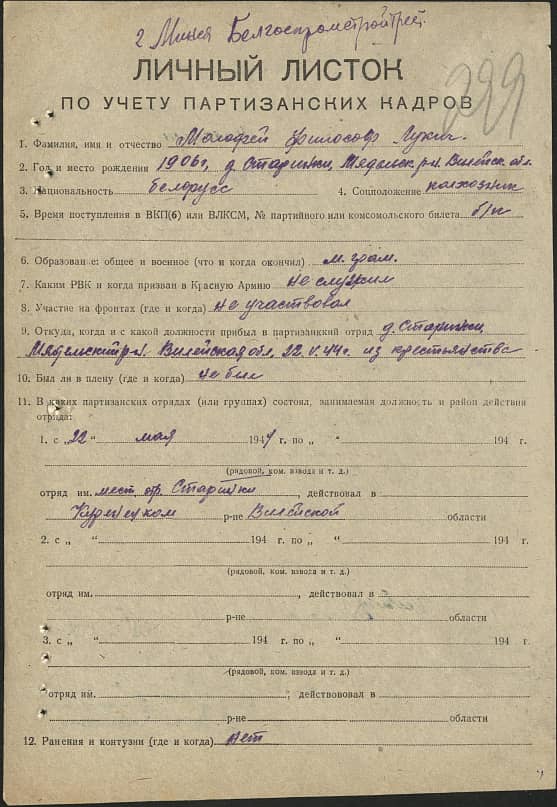 г Минск Белгоспромстройтрест.
ЛИЧНЫЙ ЛИСТОК
ПО УЧЕТУ ПАРТИЗАНСКИХ КАДРОВ
299
1. Фамилия, имя и отчество Малофей Философ Лукич.
2. Год и место рождения 1906г, д. Старинки, Мядельск. р-н. Вилейск. обл.
3. Национальность белорусс 4. Соцположение колхозник
5. Время поступления в ВКП(б) или ВЛКСМ, № партийного или комсомольского билета б/п
6. Образование: общее и военное (что и когда окончил) м. грам.
7. Каким РВК и когда призван в Красную Армию не служил
8. Участие на фронтах (где и когда) не участвовал
9. Откуда, когда и с какой должности прибыл в партизанский отряд д. Старинки,
Мядельский р-н. Вилейская обл. 22.V.44г. из крестьянства
10. Был ли в плену (где и когда) не был
11. В каких партизанских отрядах (или группах) состоял, занимаемая должность и район действия
отряда:
1. с „22" мая 1944 г. по „ " 194 г.
(рядовой, ком. взвода и т. д.)
отряд им. мест. отр. Старинки, действовал в
Куренецком р-не Вилейской области
2. с „ " 194 г. по „ " 194 г.
(рядовой, ком. взвода и т. д.)
отряд им. , действовал в
р-не области
3. с „ " 194 г. по „ " 194 г.
(рядовой, ком. взвода и т. д.)
отряд им. , действововал в
р-не области
12. Ранения и контузии (где и когда) нет